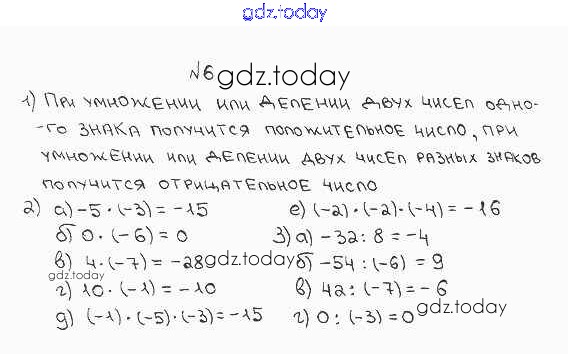 gdz.today
№6 gdz.today
1) При умножении или делении двух чисел одно-
-го знака получится положительное число, при
умножении или делении двух чисел разных знаков
получится отрицательное число
2) а) -5 · (-3) = -15
б) 0 · (-6) = 0
в) 4 · (-7) = -28 gdz.today
gdz.today
г) 10 · (-1) = -10
д) (-1) · (-5) · (-3) = -15
е) (-2) · (-2) · (-4) = -16
3) а) -32 : 8 = -4
б) -54 : (-6) = 9
в) 42 : (-7) = -6
gdz.today
г) 0 : (-3) = 0